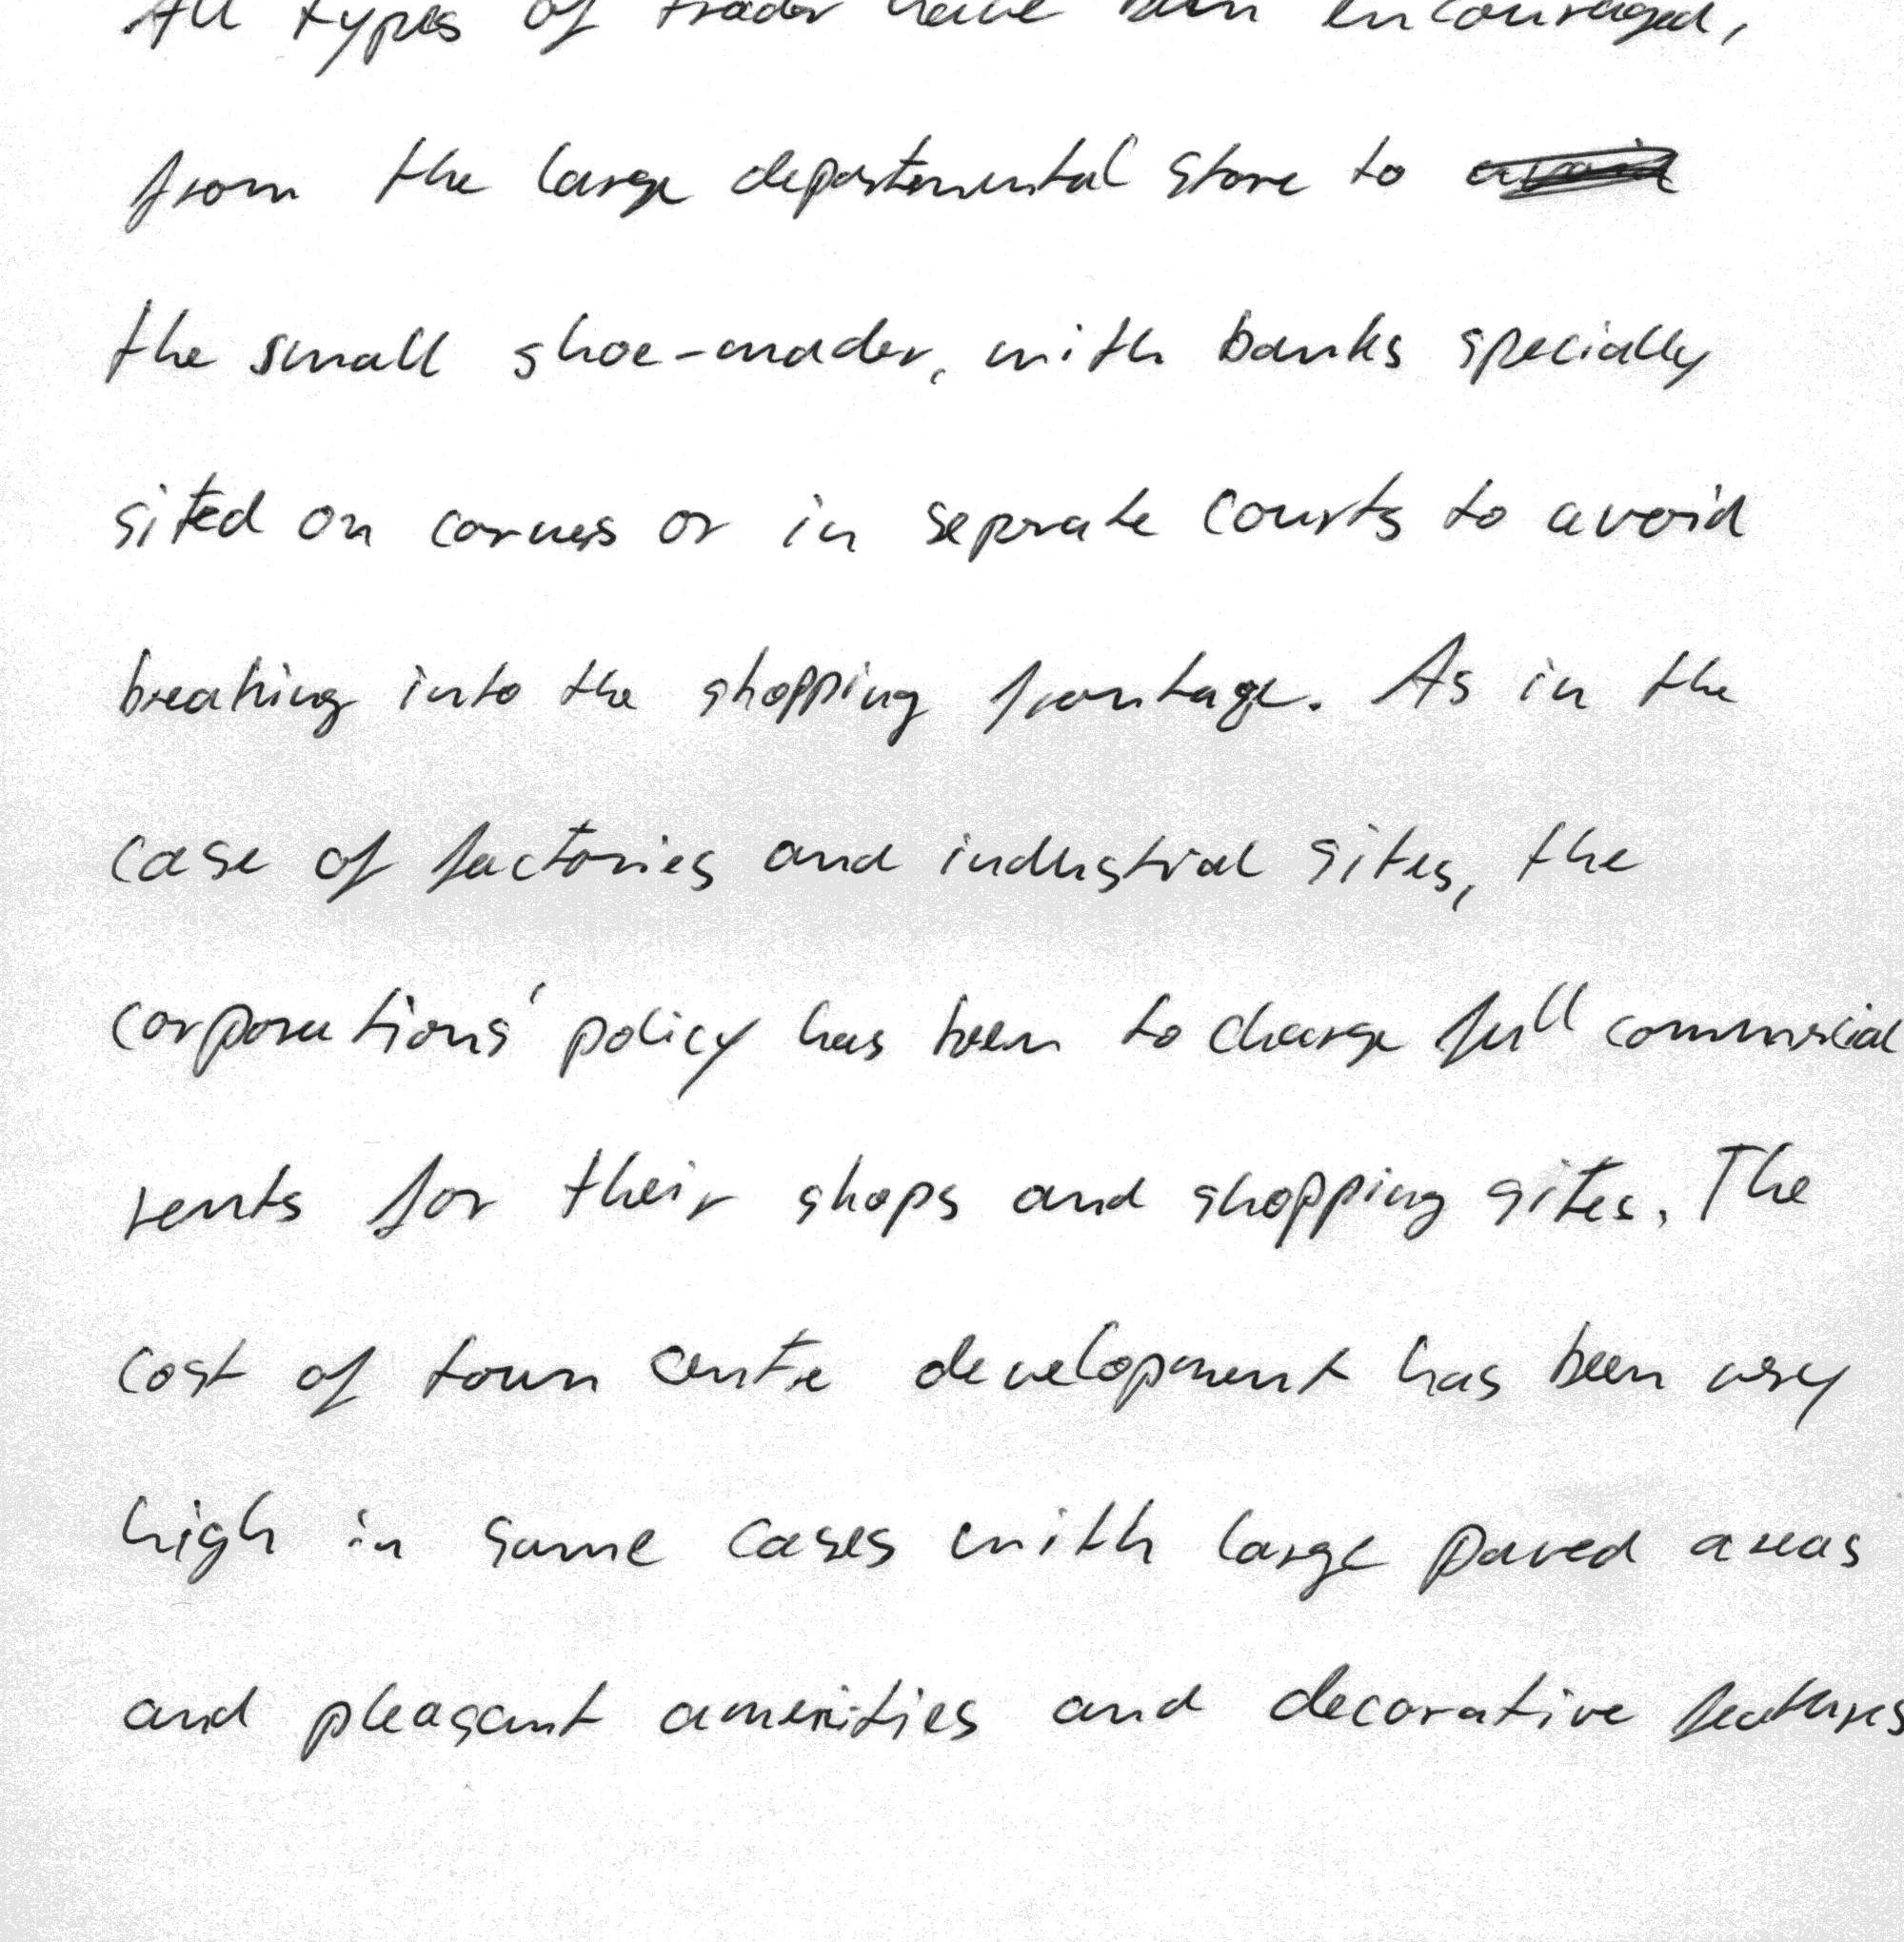 All types of trader have been encouraged,
from the large departemental store to
the small shoe-mader, with banks specially
sited on corners or in seprate courts to avoid
breaking into the shopping frontage. As in the
case of factories and industrial sites, the
corporations' policy has been to charge full commercial
rents for their shops and shopping sites. The
cost of town centre development has been very
high in some cases with large paved areas
and pleasant amenities and decorative features